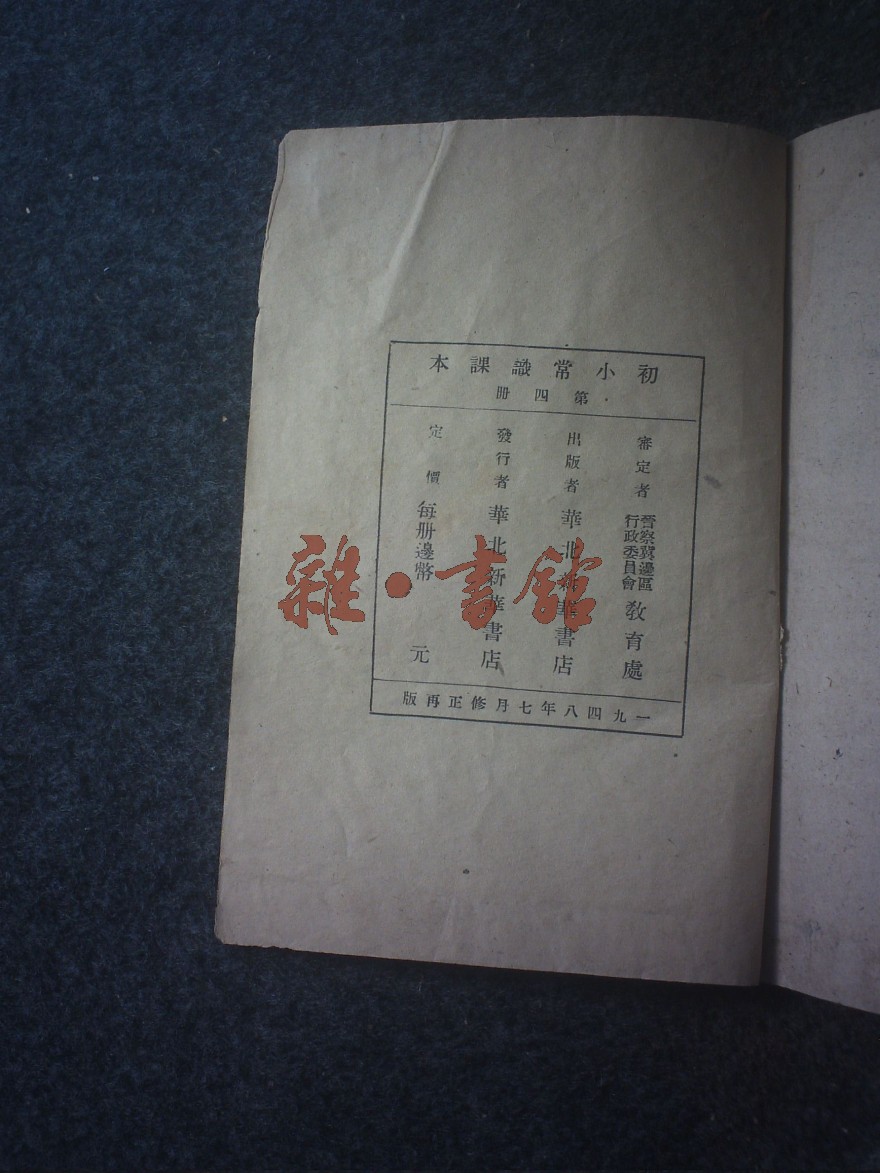 初小常識課本
第四冊
審定者 晉察冀邊區行政委員會 教育處
出版者 華北新華書店
發行者 華北新華書店
定價 每册邊幣 元
一九四八年七月修正再版
雜·書館